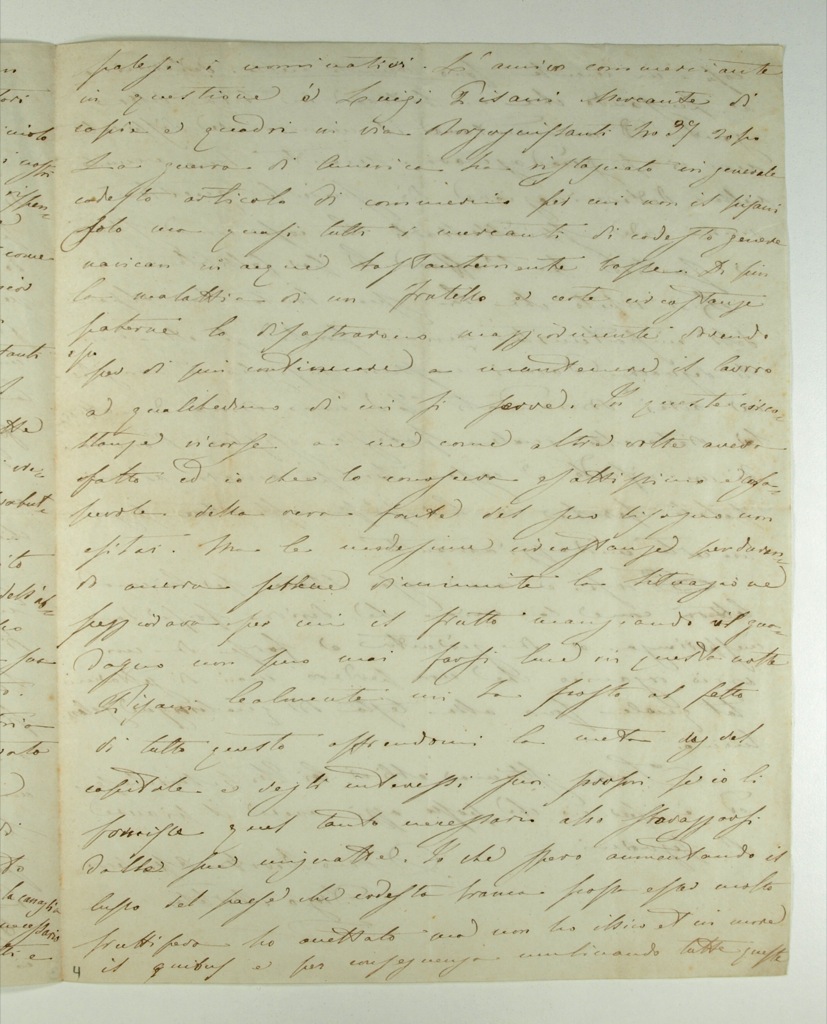 palesi i nominativi. L'amico commerciante
in questione è Luigi Pisani Mercante di
copie e quadri in via Borgognissanti No 37 dopo
La guerra di America ha ristagnato in generale
codesto articolo di commercio per cui non il Pisani
solo ma quasi tutti i mercanti di codesto genere
navican in acque bastantemente basse. Di più
la malattia di un fratello e certe circostanze
paterne lo disastrarono maggiormente dovendo
per di più continuare a mantenere il lavoro
a qualcheduno di cui si serve. In queste circo-
stanze ricorse a me come altre volte aveva
fatto ed io che lo conosceva esattissimo e consa-
pevole della vera fonte del suo bisogno non
esitai. Ma le medesime circostanze perduran-
di ancora sebbene diminuite la situazione
peggiorava per cui il frutto mangiando il gua-
dagno non può mai farsi luce in questa notte
Pisani lealmente mi ha posto al fatto
di tutto questo offrendomi la metà del
capitale e degli interessi suoi propri se io li
fornisse quel tanto necessario allo strapparsi
dalle sue mignatte. Io che spero aumentando il
lusso del paese che codesta branca possa esser molto
fruttifera ho accettato ma non ho illico et in more
il quibus e per conseguenza combinando tutte queste
4
ito
tria